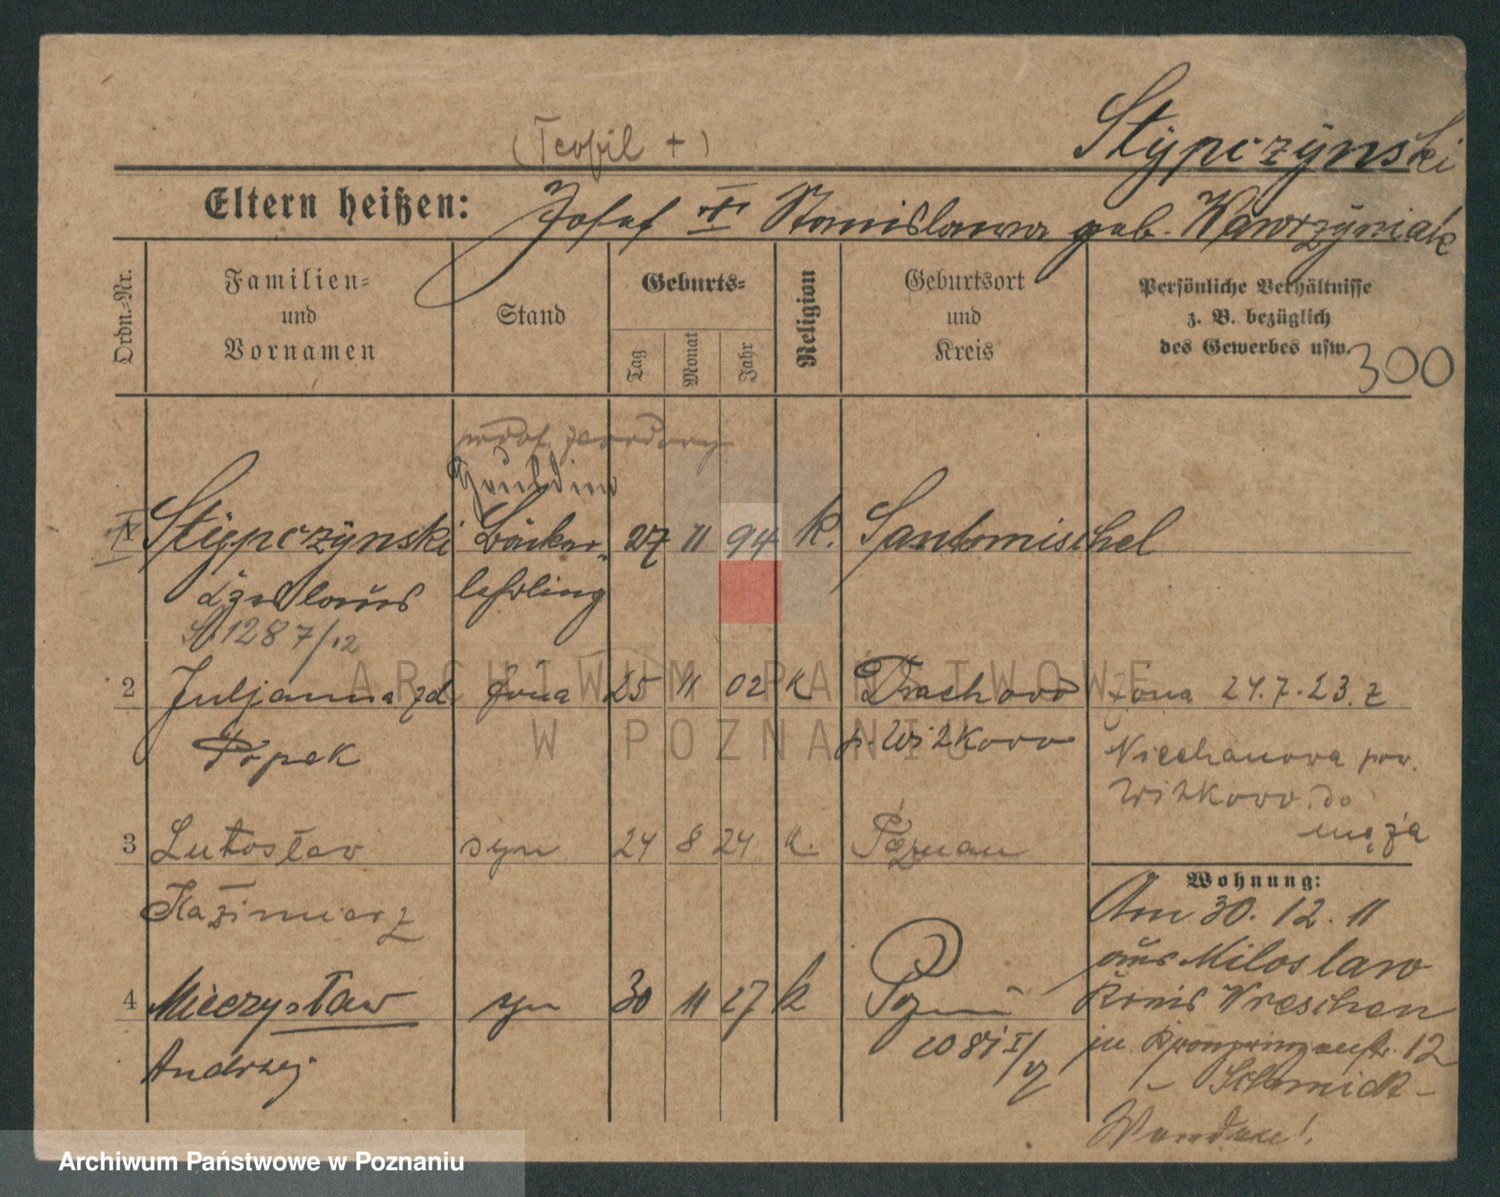 (Teofil +)
Stÿpczÿnski
Eltern heißen: Josef + Stanislawa geb. Wawrzÿniak
Ordn.-Nr.
Familien- und Vornamen
Stand
Geburts-
Tag
Monat
Jahr
Religion
Geburtsort und Kreis
Persönliche Verhältnisse
z. B. bezüglich
des Gewerbes usw.
300
1 Stÿpczÿnski Bäcker- 27 11 94 k. Santomischel
lehrling
1287/12
2 Juljanna zd. żona 25 11 02 k Drachowo żona 24.7.23. z
Popek p. Witkowo Niechanowa pow.
Witkowo do
męża
3 Lutosław syn 24 8 24 k. Poznań
Kazimierz
Wohnung:
Am 30.12.11
aus Miloslaw
4 Mieczysław syn 30 11 27 k Poznań Kreis Wreschen
Andrzej in Kronprinzenstr. 12
Schmidt-
ARCHIWUM PAŃSTWOWE
W POZNANIU
Archiwum Państwowe w Poznaniu